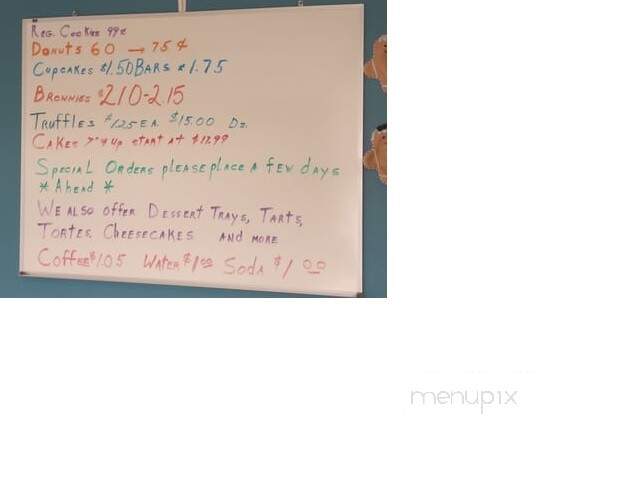 Reg. Cookies 99¢
Donuts 60 → 75¢
Cupcakes $1.50 Bars $1.75
Brownies $2.10-2.15
Truffles $1.25 EA. $15.00 Dz.
Cakes 7" & up start at $17.99
Special Orders please place a few days
* Ahead *
We also offer Dessert Trays, Tarts,
Tortes, Cheesecakes and more
Coffee $1.05 Water $1.00 Soda $1.00
menupix